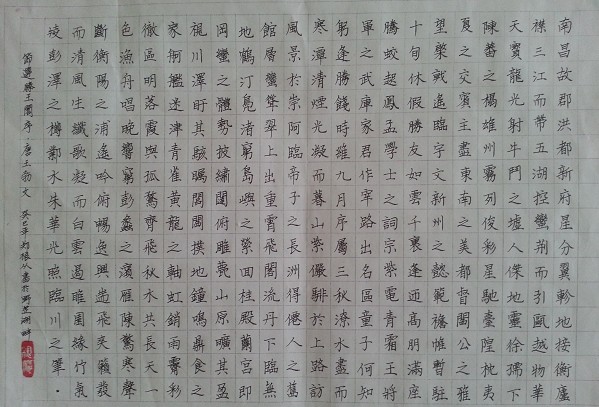 南昌故郡洪都新府星分翼軫地接衡廬
襟三江而帶五湖控蠻荊而引甌越物華
天寶龍光射牛鬥之墟人傑地靈徐孺下
陳蕃之榻雄州霧列俊彩星馳臺隍枕夷
夏之交賓主盡東南之美都督閻公之雅
望棨戟遙臨宇文新州之懿範襜帷暫駐
十旬休假勝友如雲千里逢迎高朋滿座
騰蛟起鳳孟學士之詞宗紫電青霜王將
軍之武庫家君作宰路出名區童子何知
躬逢勝餞時維九月序屬三秋潦水盡而
寒潭清煙光凝而暮山紫儼驂騑於上路訪
風景於崇阿臨帝子之長洲得僊人之舊
館層巒聳翠上出重霄飛閣流丹下臨無
地鶴汀鳧渚窮島嶼之縈迴桂殿蘭宮即
岡巒之體勢披繡闥俯雕甍山原曠其盈
視川澤盱其駭矚閭閻撲地鐘鳴鼎食之
家舸艦迷津青雀黃龍之軸虹銷雨霽彩
徹區明落霞與孤鶩齊飛秋水共長天一
色漁舟唱晚響窮彭蠡之濱雁陳驚寒聲
斷衡陽之浦遙吟俯暢逸興遄飛爽籟發
而清風生纖歌凝而白雲遏睢園綠竹氣
凌彭澤之樽鄴水朱華光照臨川之筆
節選滕王閣序 唐王勃文 癸巳年